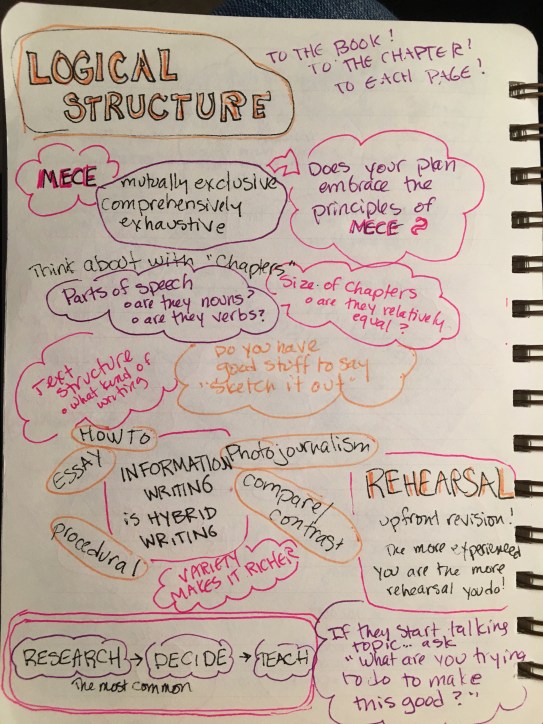 LOGICAL
STRUCTURE
TO THE BOOK!
TO THE CHAPTER!
TO EACH PAGE!
MECE
mutually exclusive
comprehensively
exhaustive
Does your plan
embrace the
principles of
MECE?
Think about with "Chapters"
Parts of speech
o are they nouns?
o are they verbs?
Size of Chapters
o are they relatively
equal?
Text
structure
o what kind of
writing
Do you have
good stuff to say
"sketch it out"
HOW TO
ESSAY
procedural
INFORMATION
WRITING
is HYBRID
WRITING
Photojournalism
compare/
contrast
VARIETY
MAKES IT RICHER
REHEARSAL
upfront revision!
The more experienced
you are the more
rehearsal you do!
RESEARCH → DECIDE → TEACH
The most common
If they start talking
topic... ask
"What are you trying
to do to make
this good?"